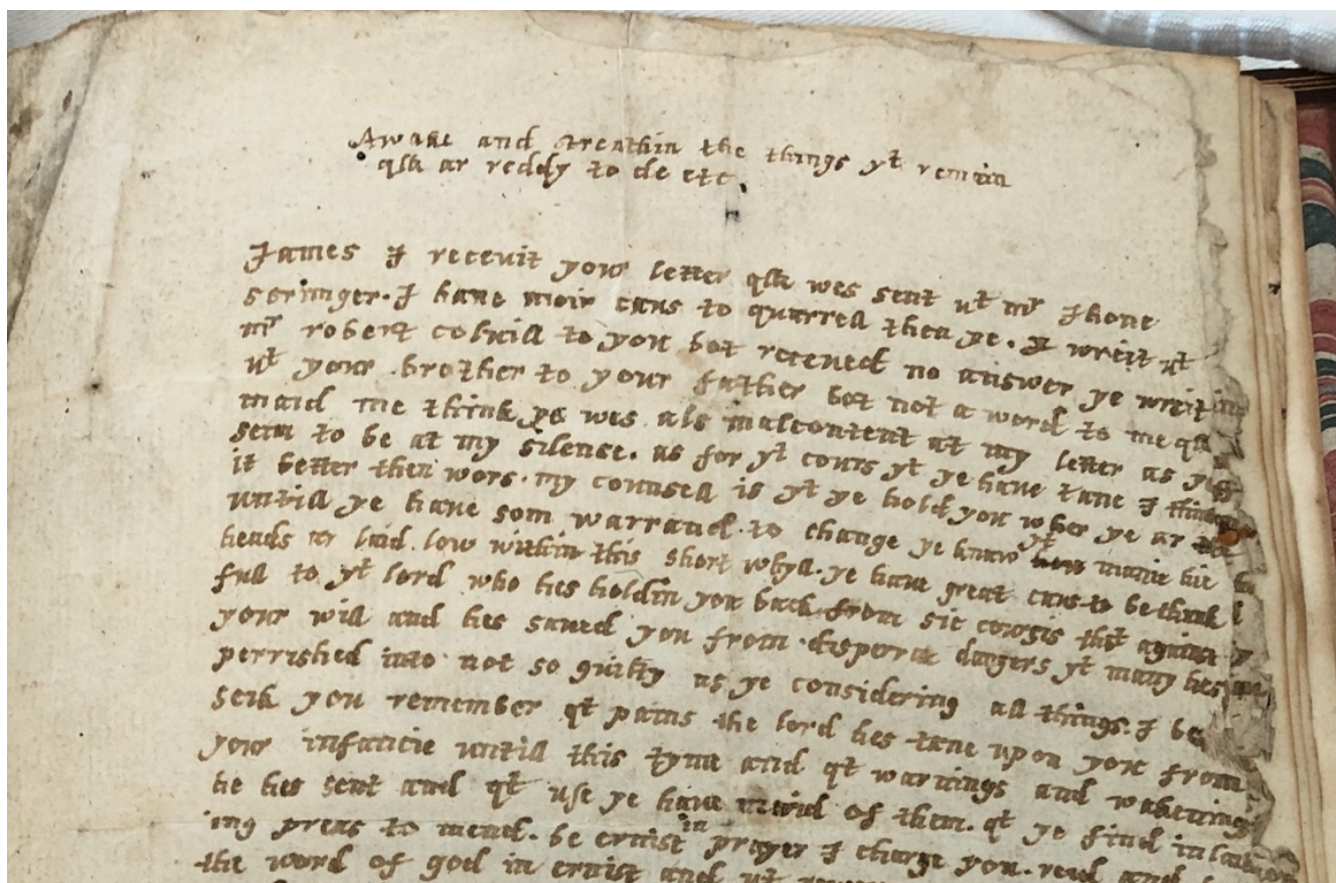 Awake and strenthin the things yt remain
qlk ar reddy to de etc.
James I receuit your letter qlk wes sent wt mr Jhone
scringer. I haue moir caus to quarrell then ye. I wreit wt
mr robert coluill to you bot receued no answer ye wreit
wt your brother to your father bot not a word to me qlk
maid me think ye wes als malcontent at my letter as ye
seim to be at my silence. as for yt cours yt ye haue tane I think
it better then wors. my counsell is yt ye hold you wher ye ar
untill ye haue som warrand to change ye knaw yt manie hie
heads ar laid low within this short whyll. ye haue great caus to be thank
full to yt lord who hes holdin you back from sic coursis that against
your will and hes saued you from disperat dangers yt many hes
perrished into not so guilty as ye considering all things. I be
seik you remember qt pains the lord hes tane upon you from
your infancie untill this tyme and qt warnings and wakenings
he hes sent and qt use ye haue maid of them. qt ye find in
ing preas to mend. be ernist in prayer I charge you. reid and
the word of god in ernist and wt